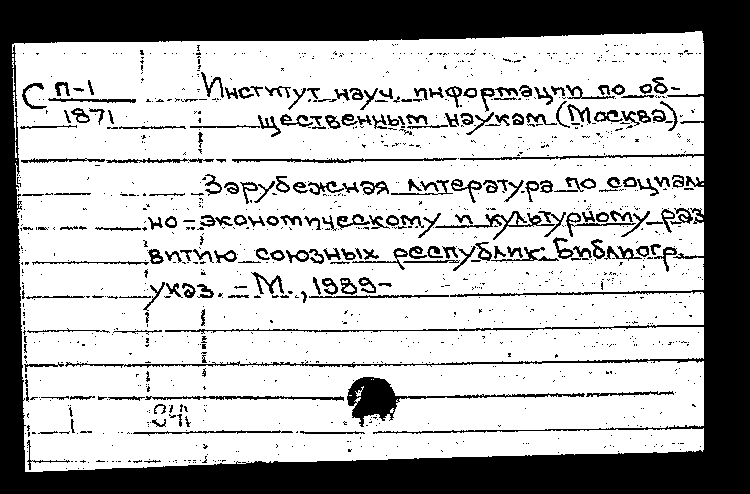 С П-1
1871
Институт науч. информации по об-
щественным наукам (Москва).
Зарубежная литература по социаль
но-экономическому и культурному раз
витию союзных республик: Библиогр.
указ. – М., 1989-